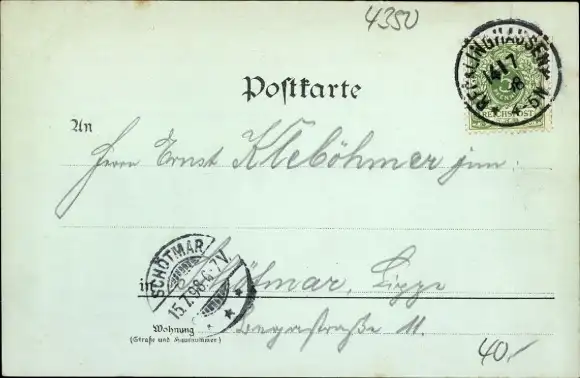 4350
RECKLINGHAUSEN
14/7
98
REICHSPOST
Postkarte
An
Herrn Ernst Kleböhmer jun:
SCHÖTMAR
15.7.98.6-7V.
in Schötmar, Lippe
Wohnung
(Straße und Hausnummer)
Begastraße 11.
40/